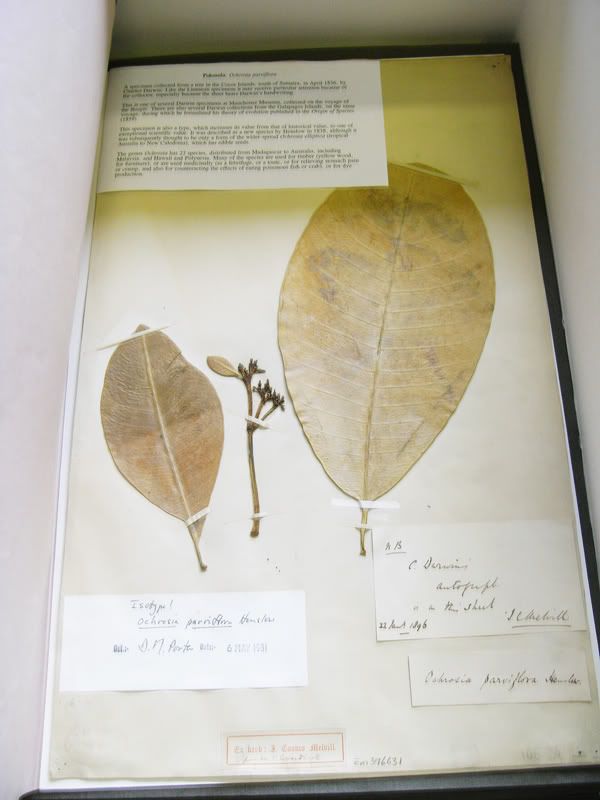 Pokosola. Ochrosia parviflora
A specimen collected from a tree in the Cocos Islands, south of Sumatra, in April 1836, by
Charles Darwin. Like the Linnaean specimens it may receive particular attention because of
the collector, especially because the sheet bears Darwin's handwriting.
This is one of several Darwin specimens at Manchester Museum, collected on the voyage of
the Beagle. There are also several Darwin collections from the Galapagos Islands, on the same
voyage, during which he formulated his theory of evolution published in the Origin of Species
(1859).
This specimen is also a type, which increases its value from that of historical value, to one of
exceptional scientific value. It was described as a new species by Henslow in 1838, although it
was subsequently thought to be only a form of the wider-spread Ochrosia elliptica (tropical
Australia to New Caledonia), which has edible seeds.
The genus Ochrosia has 23 species, distributed from Madagascar to Australia, including
Malaysia, and Hawaii and Polynesia. Many of the species are used for timber (yellow wood,
for furniture), or are used medicinally (as a febrifuge, or a tonic, or for relieving stomach pain
or cramp, and also for counteracting the effects of eating poisonous fish or crab), or for dye
production.
N B
C. Darwin's
autograph
is on this sheet
J C Melvill
22 1896
Isotype!
Ochrosia parviflora Henslow
Det.: D. M. Porter Date: 6 MAY 1981
Ochrosia parviflora Henslow.
Ex herb: J. Cosmo Melvill.
Em 396631